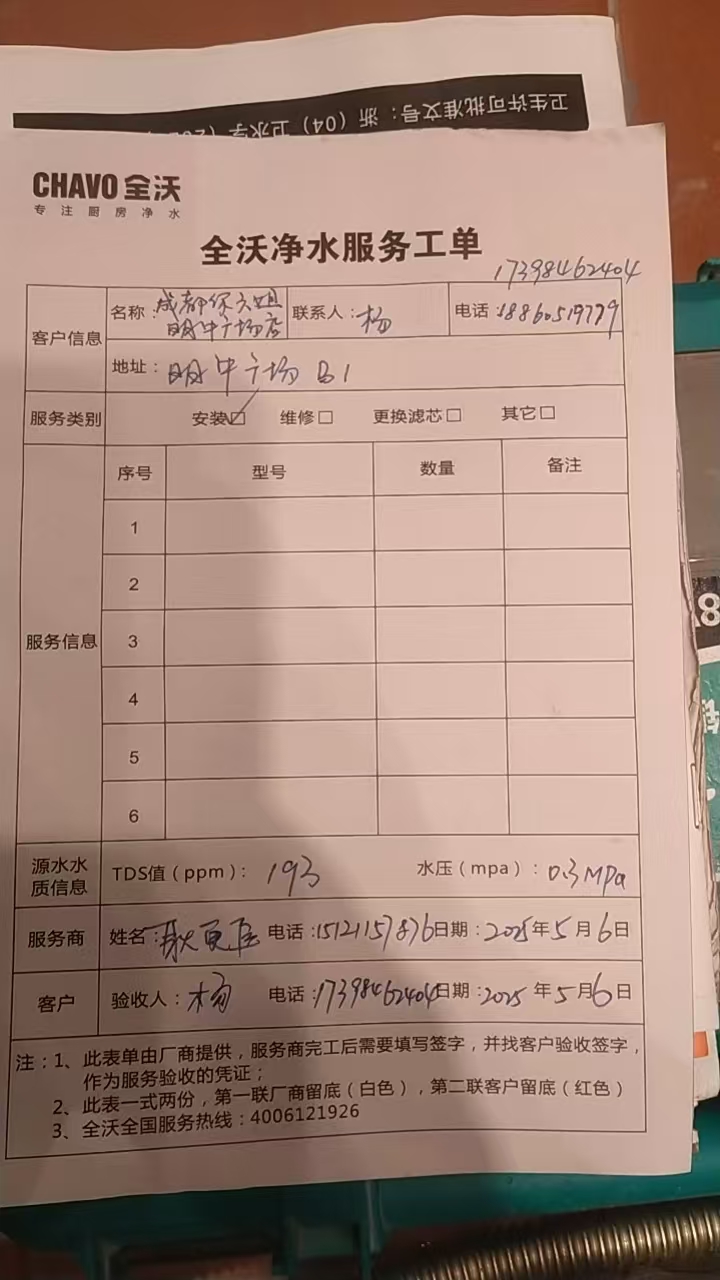 卫生许可批准文号：浙（04）卫水字（20
CHAVO 全沃
专注厨房净水
全沃净水服务工单
17398462404
客户信息
名称：成都保大姐
明中广场店
联系人：杨
电话：18860519779
地址：明中广场B1
服务类别 安装☑ 维修□ 更换滤芯□ 其它□
服务信息
序号 型号 数量 备注
1
2
3
4
5
6
源水水质信息 TDS值（ppm）：193 水压（mpa）：0.3MPa
服务商 姓名：耿 电话：15121157876 日期：2025年5月6日
客户 验收人：杨 电话：17398462404 日期：2025年5月6日
注：1、此表单由厂商提供，服务商完工后需要填写签字，并找客户验收签字，
作为服务验收的凭证；
2、此表一式两份，第一联厂商留底（白色），第二联客户留底（红色）
3、全沃全国服务热线：4006121926